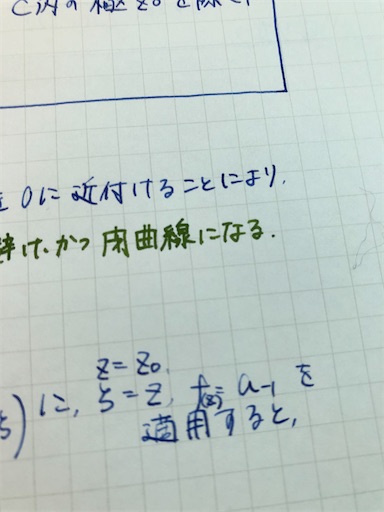 C内の極 z₀ を除く
を 0に近付けることにより,
避け、かつ閉曲線になる.
z = z₀,
5) に, ζ = z, f(z) = a₋₁ を
適用すると,